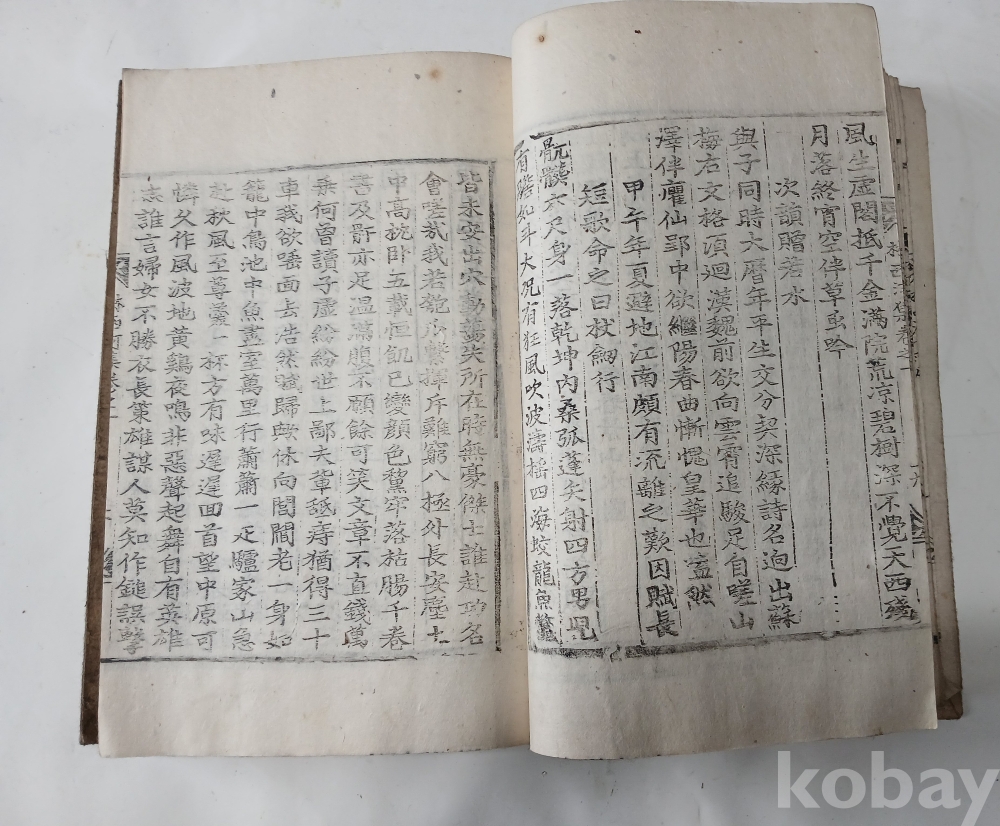 風生虛閣抵千金滿院荒凉碧樹深不覺天西殘
月落終宵空伴草虫吟
次讀贈若水
與子同時大曆年平生文分契深緣詩名逈出蘇
梅右文格須迴漢魏前欲向雲霄追駿足自嗟山
澤伴癯仙郢中欲繼陽春曲慚愧皇華也盍然
甲午年夏避地江南頗有流離之歎因賦長
短歌命之曰杖劒行
骯髒六尺身一落乾坤內桑弧蓬矢射四方男兒
有膽如斗大況有狂風吹波濤搖四海蛟龍魚鼈
皆未安出穴動蕩失所在時無豪傑士誰赴功名
會嗟哉我若匏久繫揮斥難窮八極外長安塵土
中高枕卧五載恒飢已變顔色黧牢落枯腸千卷
書及骭亦足溫滿腹不願餘可笑文章不直錢萬
乘何曾讀子虛紛紛世上鄙夫輩舐痔猶得三十
車我欲唾面去浩然賦歸歟休向閭閻老一身如
籠中鳥池中魚盡室萬里行蕭蕭一疋驢家山急
赴秋風至尊罍一杯方有味遲遲回首望中原可
憐久作風波地黃鷄夜鳴非惡聲起舞自有英雄
志誰言婦女不勝衣長策雄謀人莫知作鎚誤擊
kobay